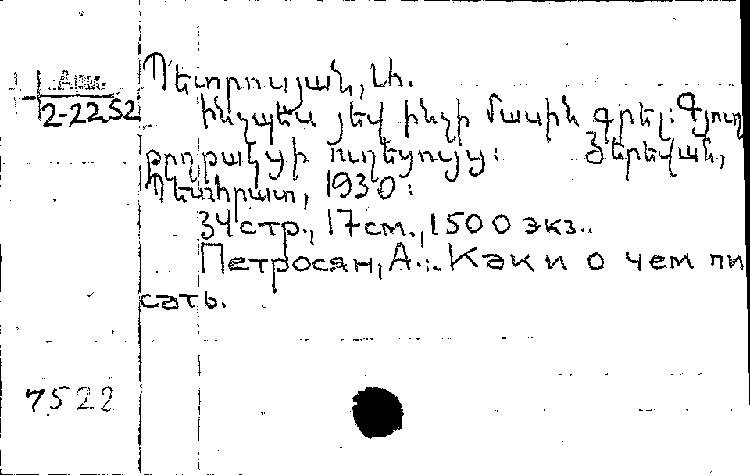 Արм.
2-2252
Պետրոսյան, Ա.
Ինչպես յեվ ինչի մասին գրել: Գյուղ
թղթակցի ուղեցույց: Յերեվան,
Պետհրատ, 1930:
34 стр., 17 см., 1500 экз..
Петросян, А.. Как и о чем пи
сать.
7522